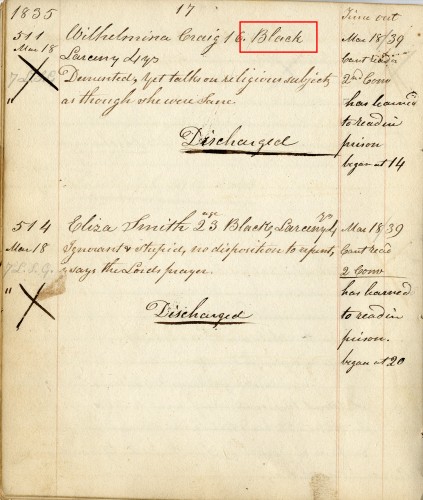 1835 17 Time out
511 Wilhelmina Craig 16. Black Mar 18/39
Mar 18 Larceny 4 yrs Cant read
Demented, yet talks on religious subjects 2nd Conv
" as though she were Sane. has learned
to read in
Discharged prison
began at 14
514 Eliza Smith age 23 Black, Larceny 4 yrs Mar 18/39
Mar 18 Ignorant & stupid, no disposition to repent, Cant read
says the Lords prayer. 2 Conv
" has learned
Discharged to read in
prison.
began at 20